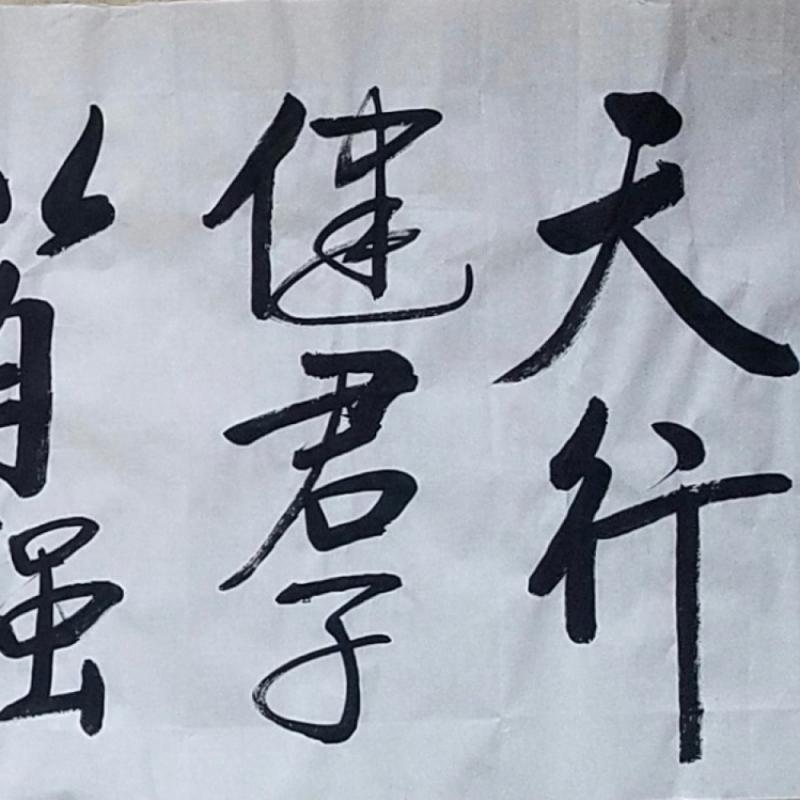 天行
健君子
以自强